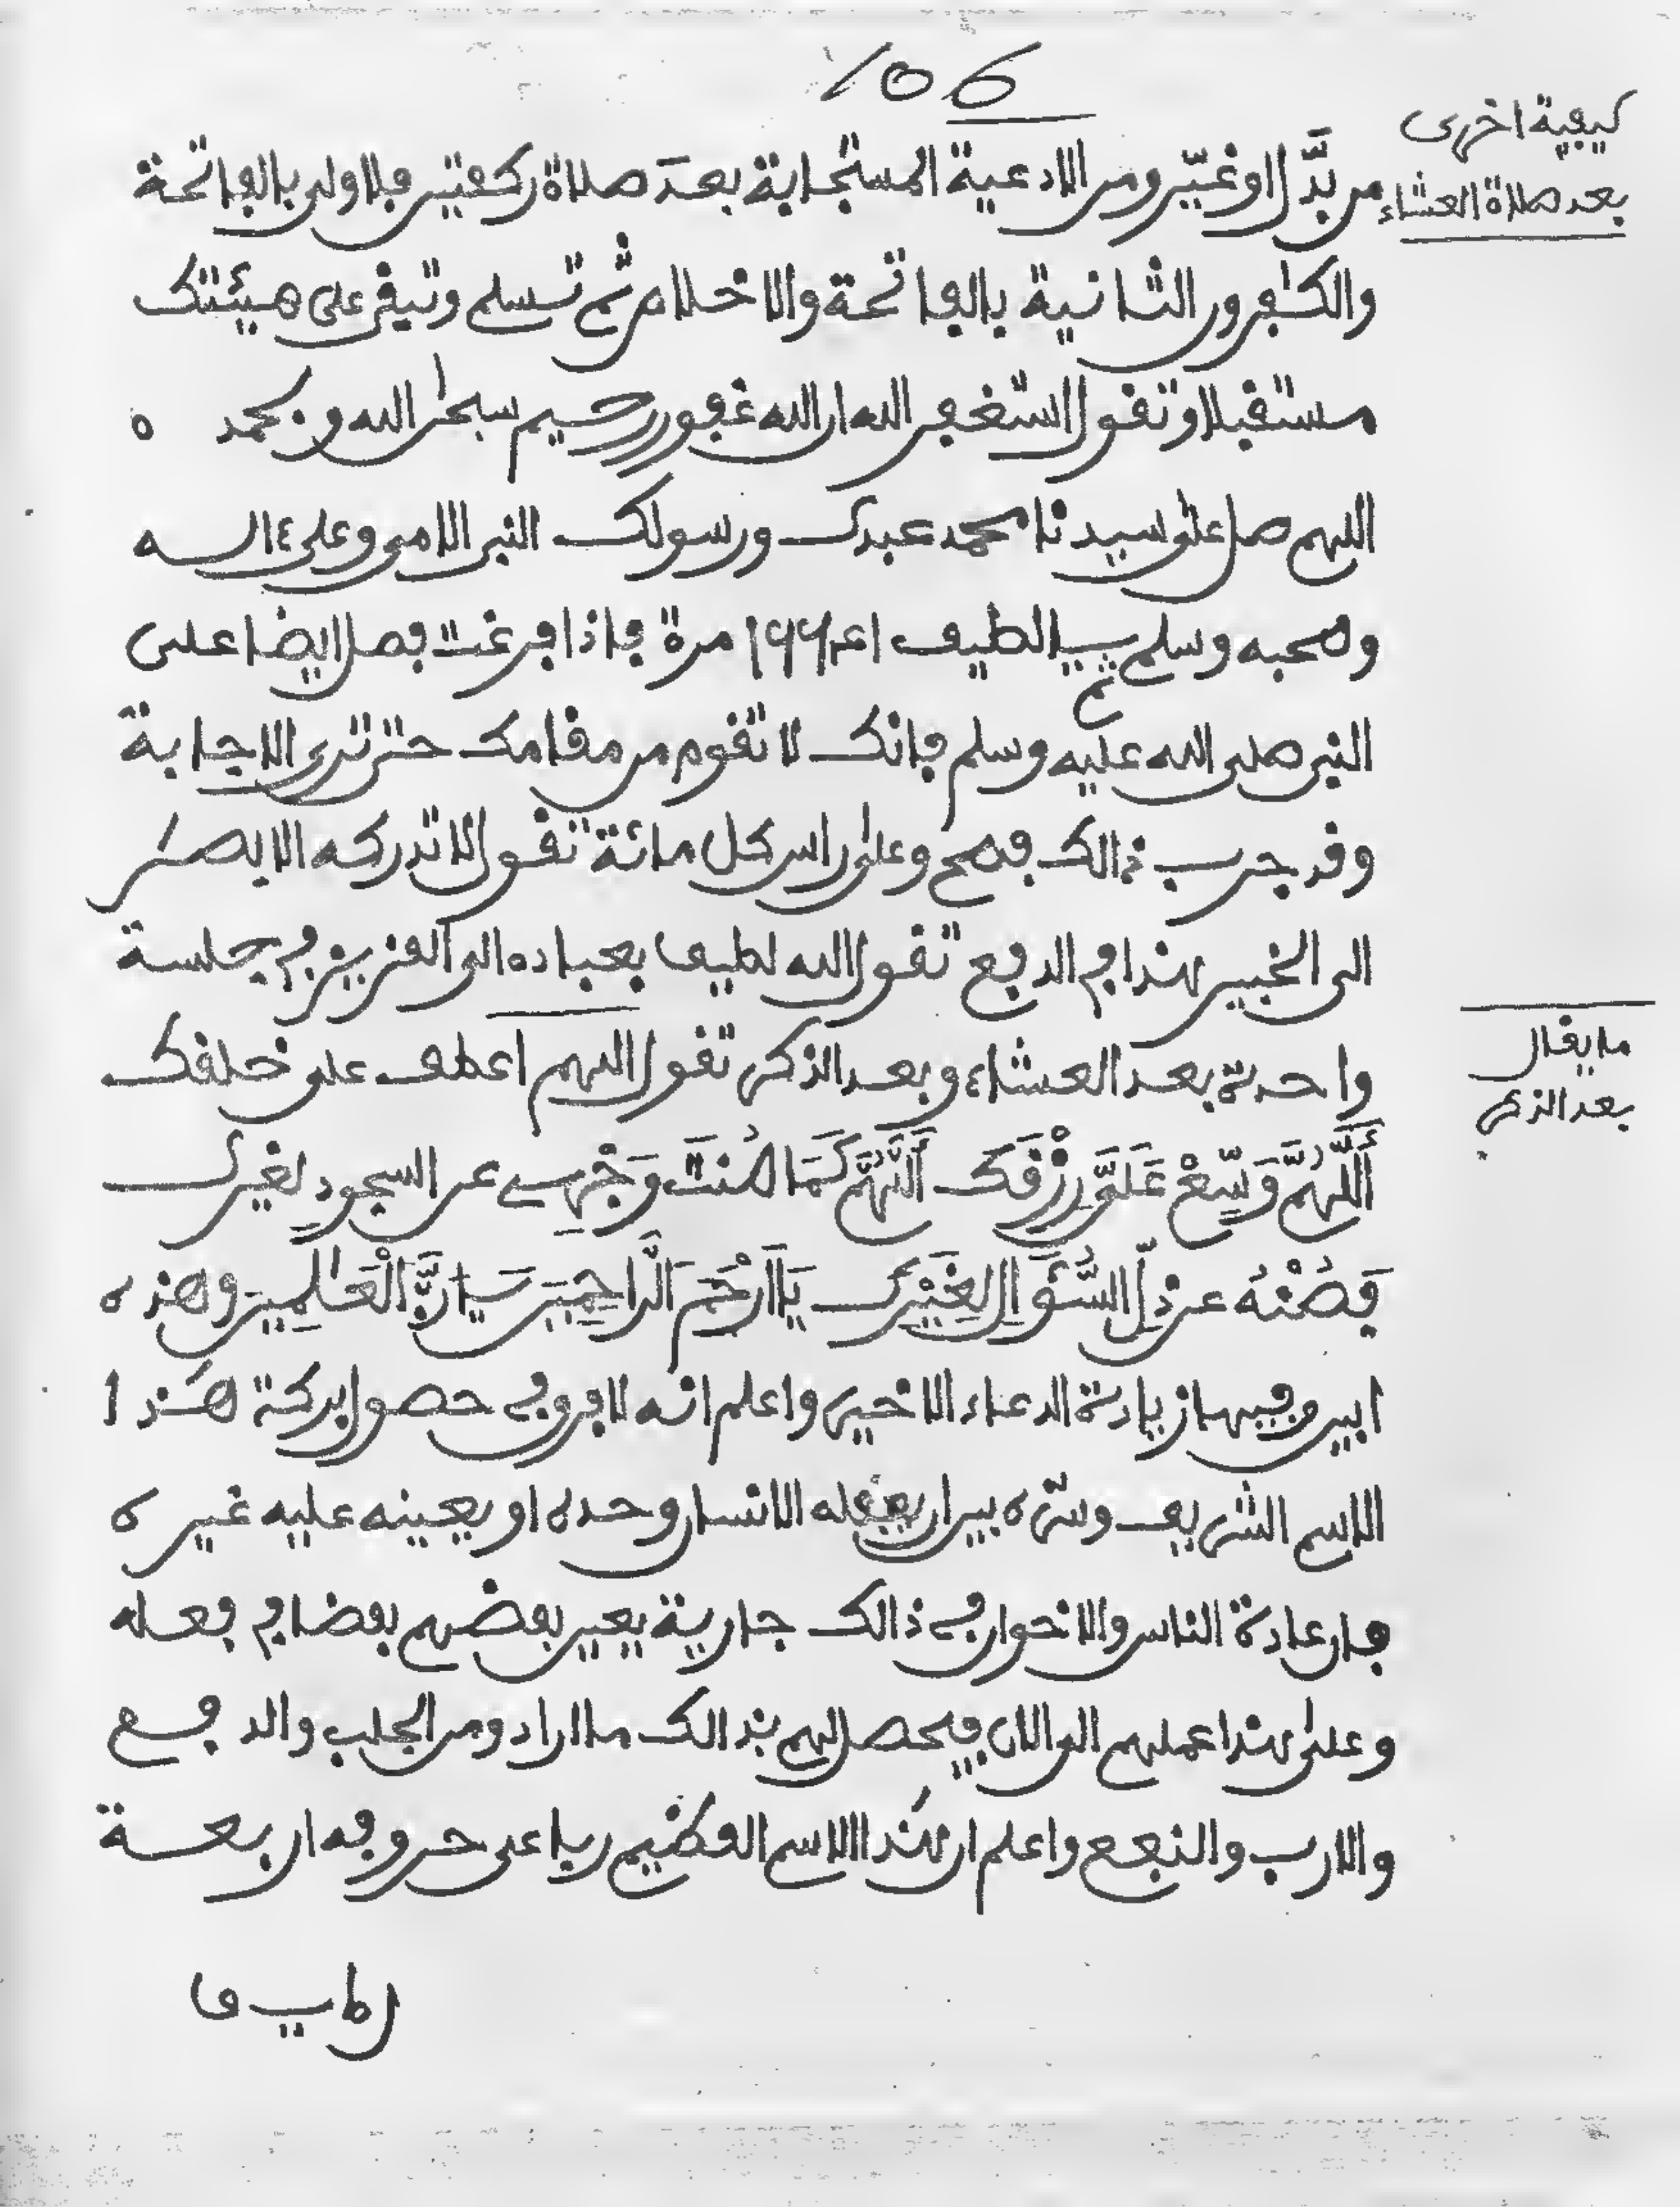 106
كيفية اخرى
بعد صلاة العشاء
من بدَّل او غيّر ومن الادعية المستجابة بعد صلاة ركعتين فالاولى بالفاتحة
والكٰفرون الثانية بالفاتحة والاخلاص ثم تسلم وتبقى على هيئتك
مستقبلا وتقول استغفر الله ان الله غفور رحيم سبحٰن الله وبحمده
اللهم صل علىٰ سيدنا محمد عبدك ورسولك النبي الامي وعلى ءاله
وصحبه وسلم ثم يا لطيف مرة فاذا فرغت فصل ايضا على
النبي صلى الله عليه وسلم فانك لا تقوم من مقامك حتى ترى الاجابة
وقد جرب ذالك فصح وعلىٰ راس كل مائة تقول لا تدركه الابصٰر
الى الخبير هذا في الدفع تقول الله لطيف بعباده الى العزيز في جلسة
واحدة بعد العشاء وبعد الذكر تقول اللهم اعطف على خلفك
ما يقال
بعد الذكر
أَللَّهُمَّ وَسِّعْ عَلَيَّ رِزْقَكَ أَللَّهُمَّ كَمَا صُنتَ وَجْهِي عن السجودِ لغيرك
فَصُنْهُ عن ذلِّ السُّؤَالِ لِغَيْرِكَ يَا أَرْحَمَ الرَّاحِمِينَ يَا رَبَّ الْعَٰلَمِينَ وهذه
ابين وفيها زيادة الدعاء الاخير واعلم انه لا فرق في حصول بركة هَٰذا
الاسم الشريف وسره بين ان يفعله الانسان وحده او يعينه عليه غيره
فان عادة الناس والاخوان في ذالك جارية يعين بعضهم بعضا في فعله
وعلىٰ هذا عملهم الى الان فيحصل لهم بذالك ما ارادو من الجلب والدفع
والارب والنفع واعلم ان هٰذا الاسم العظيم رباعي حروفه اربعة
ل ط ي ف